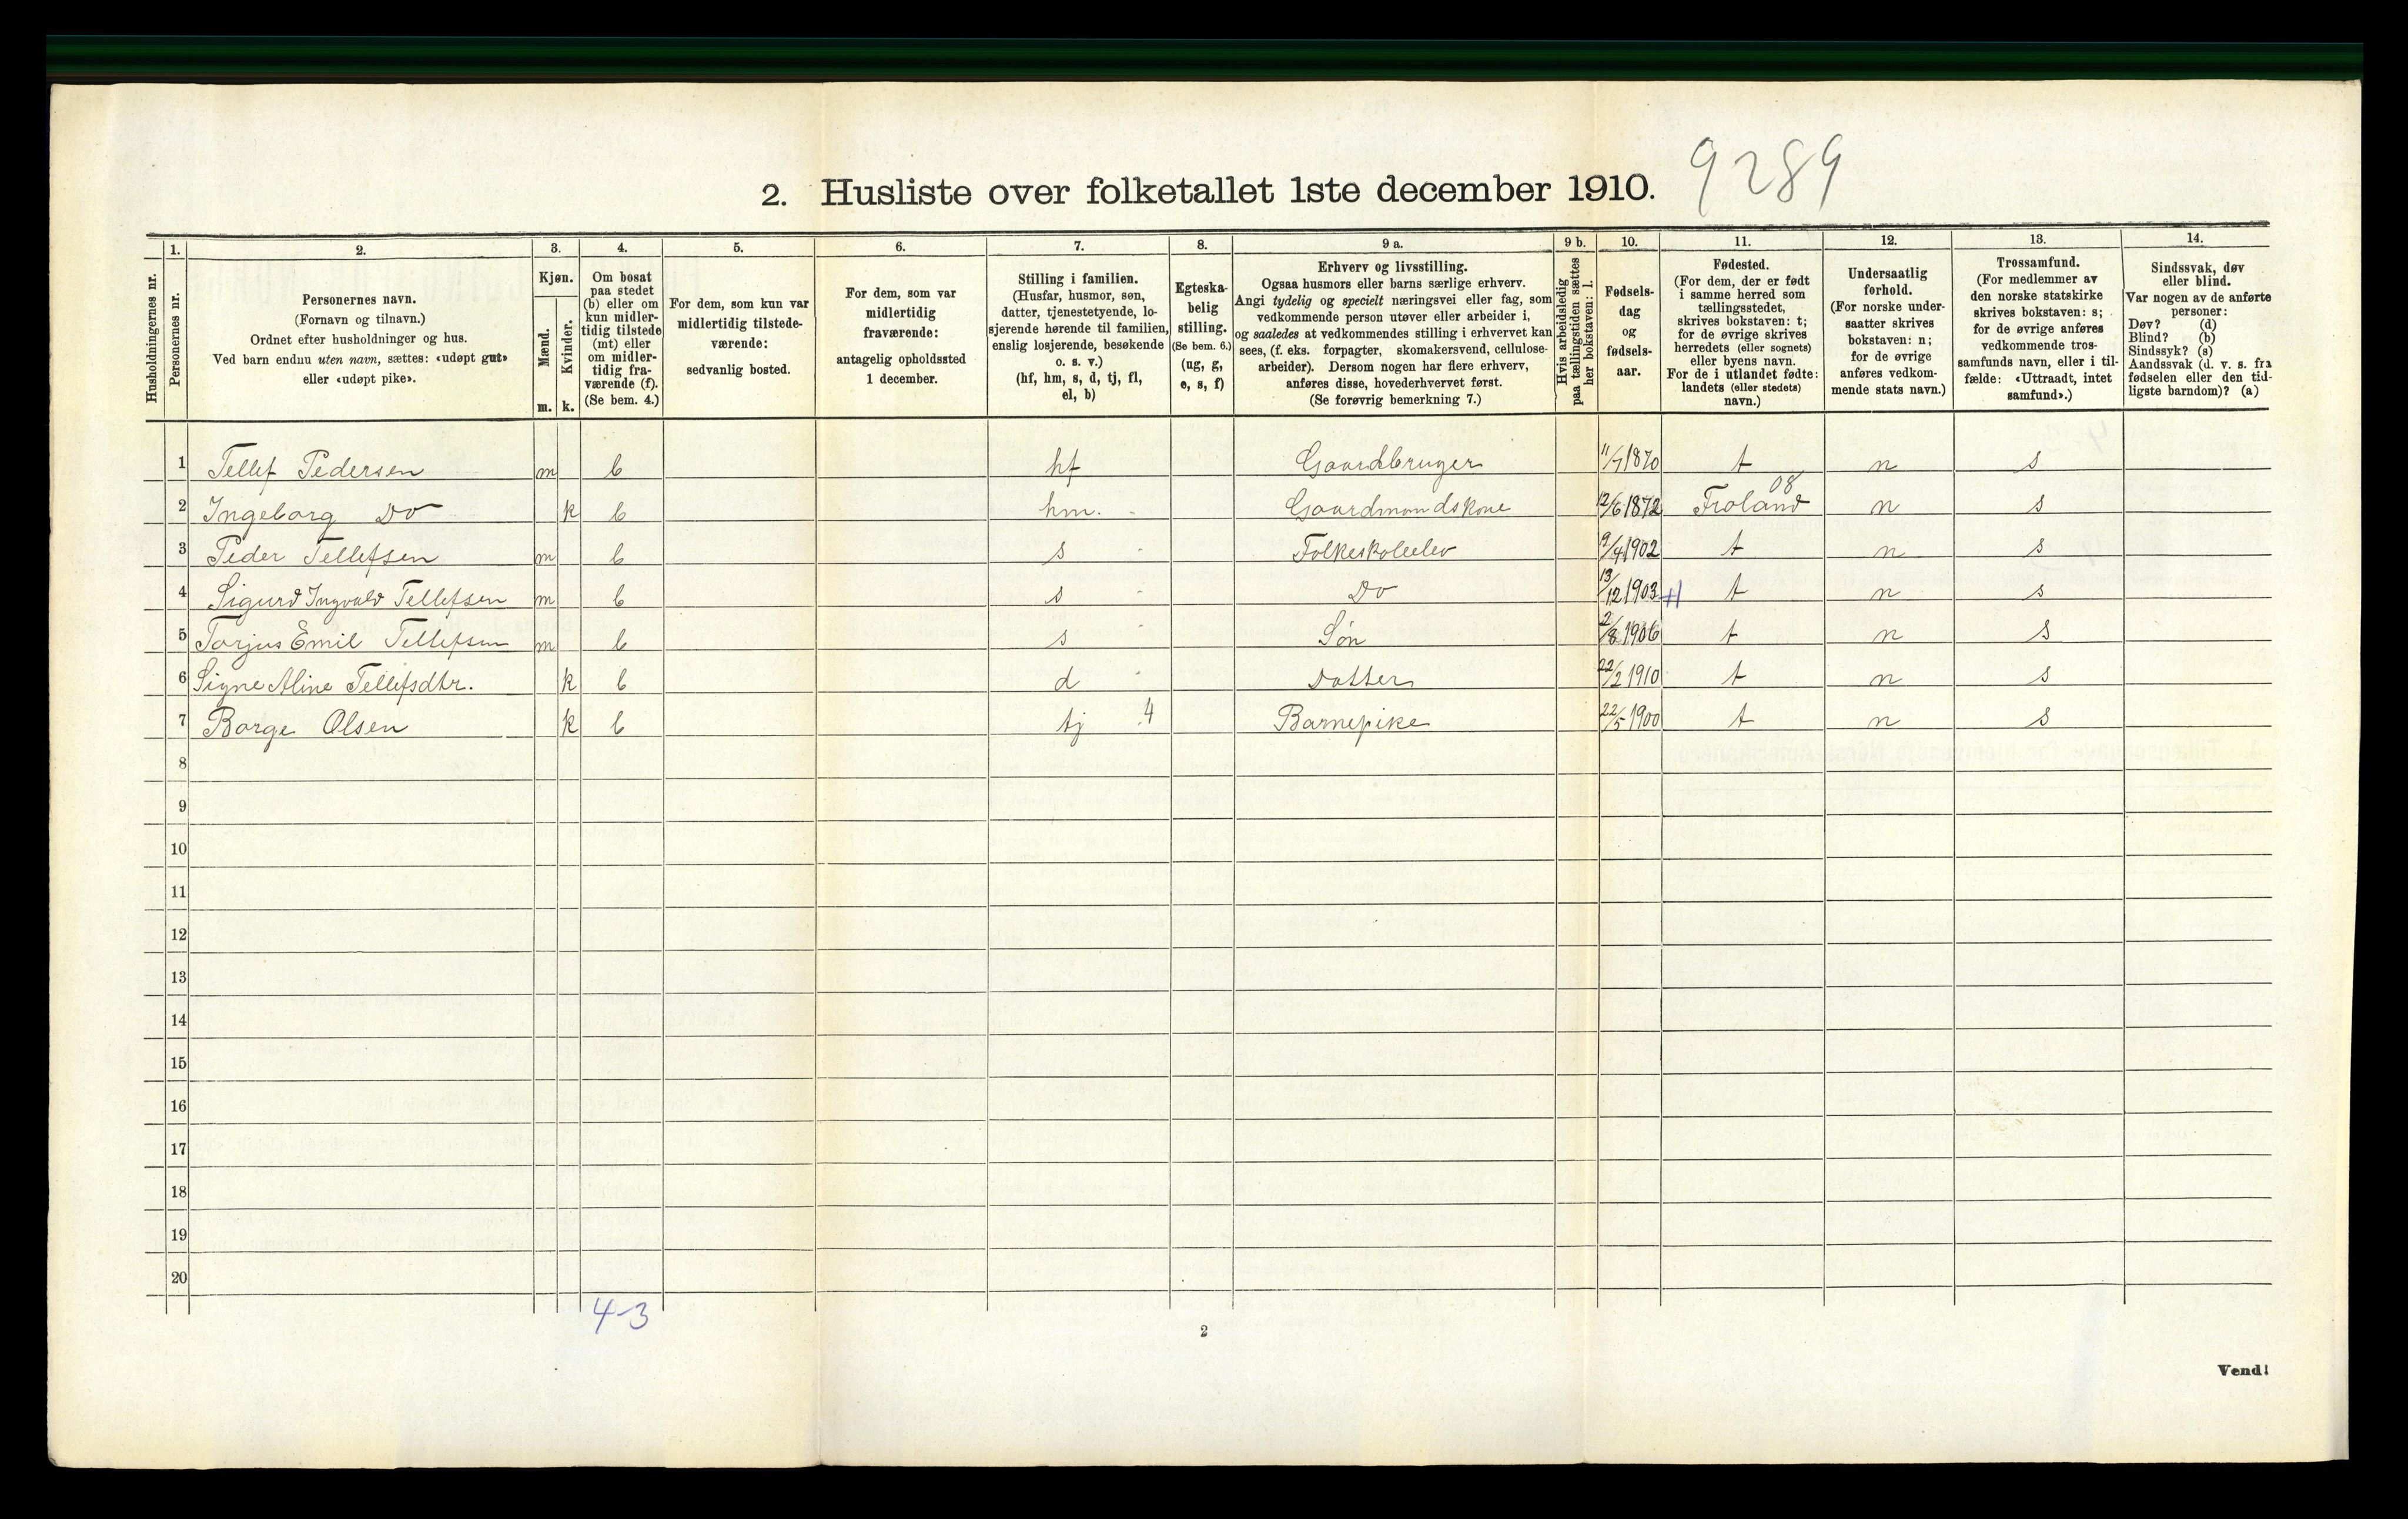 9289
2. Husliste over folketallet 1ste december 1910.
Husholdningernes nr.
1.
Personernes nr.
2.
Personernes navn.
(Fornavn og tilnavn.)
Ordnet efter husholdninger og hus.
Ved barn endnu uten navn, sættes: «udøpt gut»
eller «udøpt pike».
3.
Kjøn.
Mænd.
m.
Kvinder.
k.
4.
Om bosat
paa stedet
(b) eller om
kun midler-
tidig tilstede
(mt) eller
om midler-
tidig fra-
værende (f).
(Se bem. 4.)
5.
For dem, som kun var
midlertidig tilstede-
værende:
sedvanlig bosted.
6.
For dem, som var
midlertidig
fraværende:
antagelig opholdssted
1 december.
7.
Stilling i familien.
(Husfar, husmor, søn,
datter, tjenestetyende, lo-
sjerende hørende til familien,
enslig losjerende, besøkende
o. s. v.)
(hf, hm, s, d, tj, fl,
el, b)
8.
Egteska-
belig
stilling.
(Se bem. 6.)
(ug, g,
e, s, f)
9 a.
Erhverv og livsstilling.
Ogsaa husmors eller barns særlige erhverv.
Angi tydelig og specielt næringsvei eller fag, som
vedkommende person utøver eller arbeider i,
og saaledes at vedkommendes stilling i erhvervet kan
sees, (f. eks. forpagter, skomakersvend, cellulose-
arbeider). Dersom nogen har flere erhverv,
anføres disse, hovederhvervet først.
(Se forøvrig bemerkning 7.)
9 b.
Hvis arbeidsledig
paa tællingstiden sættes
her bokstaven: l.
10.
Fødsels-
dag
og
fødsels-
aar.
11.
Fødested.
(For dem, der er født
i samme herred som
tællingsstedet,
skrives bokstaven: t;
for de øvrige skrives
herredets (eller sognets)
eller byens navn.
For de i utlandet fødte:
landets (eller stedets)
navn.)
12.
Undersaatlig
forhold.
(For norske under-
saatter skrives
bokstaven: n;
for de øvrige
anføres vedkom-
mende stats navn.)
13.
Trossamfund.
(For medlemmer av
den norske statskirke
skrives bokstaven: s;
for de øvrige anføres
vedkommende tros-
samfunds navn, eller i til-
fælde: «Uttraadt, intet
samfund».)
14.
Sindssvak, døv
eller blind.
Var nogen av de anførte
personer:
Døv? (d)
Blind? (b)
Sindssyk? (s)
Aandssvak (d. v. s. fra
fødselen eller den tid-
ligste barndom)? (a)
1 Tellef Pedersen m b hf Gaardbruger 11/7 1870 t n s
08
2 Ingeborg Do k b hm. Gaardmandskone 12/6 1872 Froland n s
3 Peder Tellefsen m b s Folkeskoleelev 9/4 1902 t n s
4 Sigurd Ingvald Tellefsen m b s Do 13/12 1903 t n s
5 Torjus Emil Tellefsen m b s Søn 2/8 1906 t n s
6 Signe Aline Tellefsdtr. k b d Datter 22/2 1910 t n s
7 Borge Olsen k b tj 4 Barnepike 22/5 1900 t n s
8
9
10
11
12
13
14
15
16
17
18
19
20
4-3
2
Vend!